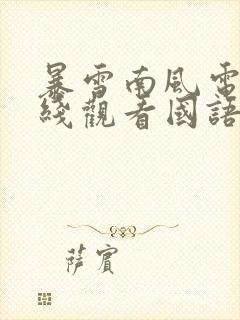 暴雪南風電
綫觀看國語
薩賓